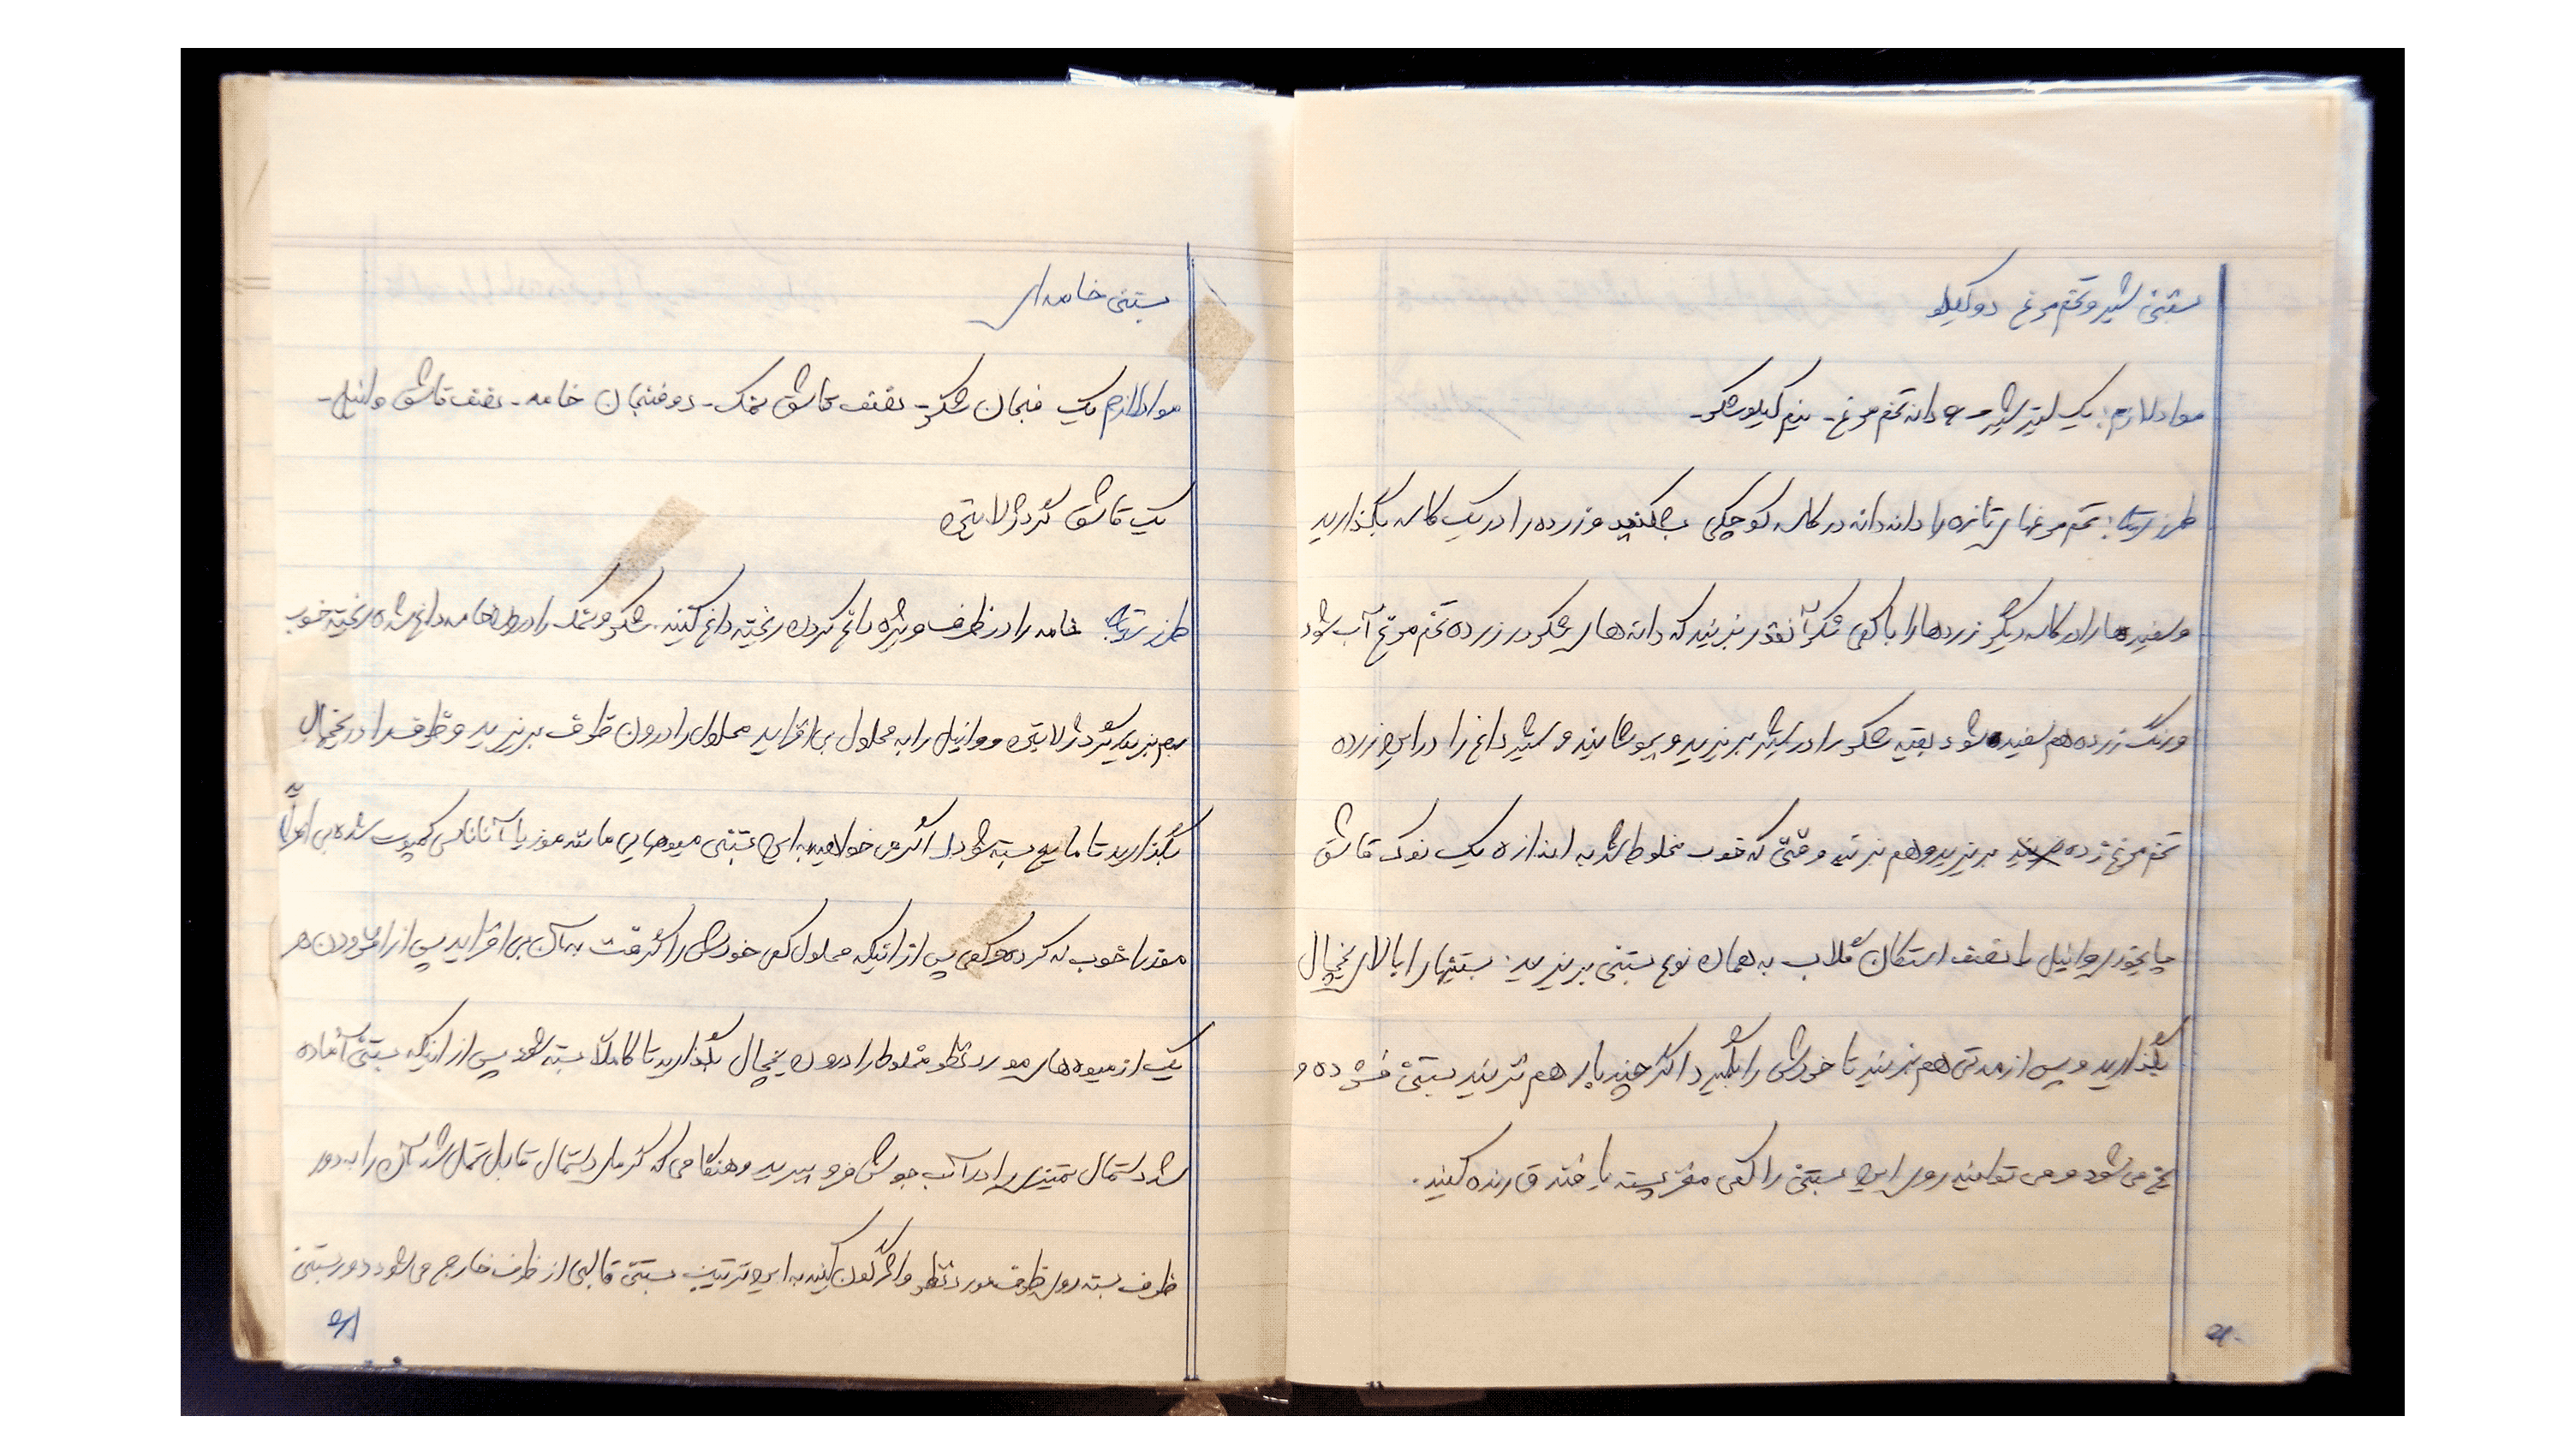 بستنی شیر و تخم مرغ دو کیلو
مواد لازم: یک لیتر شیر - ۶ دانه تخم مرغ - نیم کیلو شکر -
طرز تهیه: تخم مرغهای تازه را دانه دانه در کاسه کوچکی بشکنید و زرده را در یک کاسه بگذارید
و سفیده ها را در کاسه دیگر زرده ها را با کمی شکر آنقدر بزنید که دانه های شکر در زرده تخم مرغ آب شود
و رنگ زرده هم سفید شود بقیه شکر را در شیر بریزید و بجوشانید و شیر داغ را در این زرده
تخم مرغ زده بریزید و هم بزنید وقتی که خوب مخلوط شد به اندازه یک نوک قاشق
چایخوری وانیل با نصف استکان گلاب به همان نوع بستنی بریزید. بستنیها را بالای یخچال
بگذارید و پس از مدتی هم بزنید تا خودش را بگیرد اگر چند بار هم نزنید بستنی فشرده و
یخ می شود و می توانید روی این بستنی را کمی مغز پسته یا فندق رنده کنید.
۶۰
بستنی خامه ای
مواد لازم یک فنجان شکر - نصف قاشق نمک - دو فنجان خامه - نصف قاشق وانیل -
یک قاشق گرد ژلاتین
طرز تهیه خامه را در ظرف ویژه داغ کردن ریخته داغ کنید. شکر و نمک را در خامه داغ شده ریخته خوب
بهم بزنید گرد ژلاتین و وانیل را به محلول بی افزاید محلول را درون ظرف بریزید و ظرف را در یخچال
بگذارید تا مایع بسته شود اگر می خواهید به این بستنی میوه هایی مانند موز یا آناناس کمپوت شده بی افزائید
موز را خوب له کرده و کمی پس از اینکه محلول کمی خودش را گرفت به آن بی افزاید پس از افزودن هر
یک از میوه های مورد نظر مخلوط را درون یخچال بگذارید تا کاملاً بسته شود پس از اینکه بستنی آماده
شد دستمال تمیزی را در آب جوش فرو ببرید و هنگامی که گرمای دستمال قابل تحمل شد آن را به دور
ظرف بسته روی ظرف مورد نظر واژگون کنید به این ترتیب بستنی قالبی از ظرف خارج می شود دور بستنی
۶۱